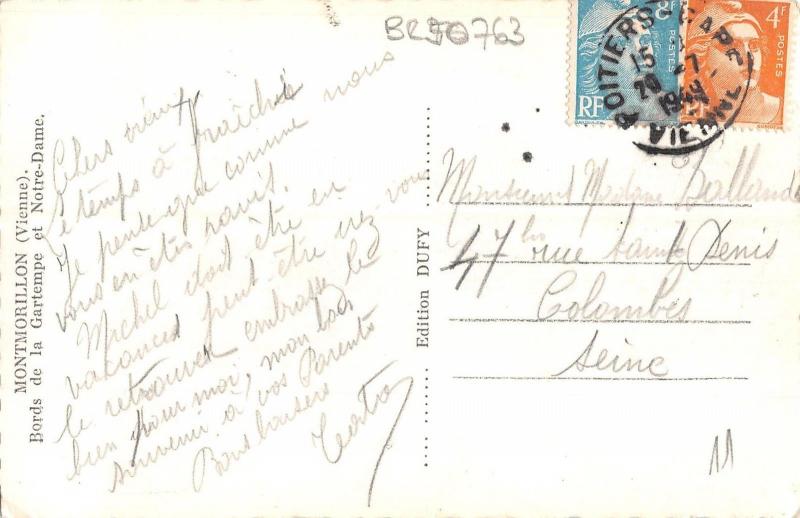 BR50763
MONTMORILLON (Vienne).
Bords de la Gartempe et Notre-Dame.
Chers vieux
Le temps à fraîchi
Je pense que comme nous
vous en êtes ravis.
Michel doit être en
vacances peut être irez vous
le retrouver embrassez le
bien pour moi, mon bon
souvenir à vos Parents
Bons baisers
Edition DUFY
8F
RF
4F
POSTES
RF
POITIERS-GARE
15
20 - 7
1949
VIENNE
Monsieur Madame
47 bis rue Saint Denis
Colombes
Seine
11